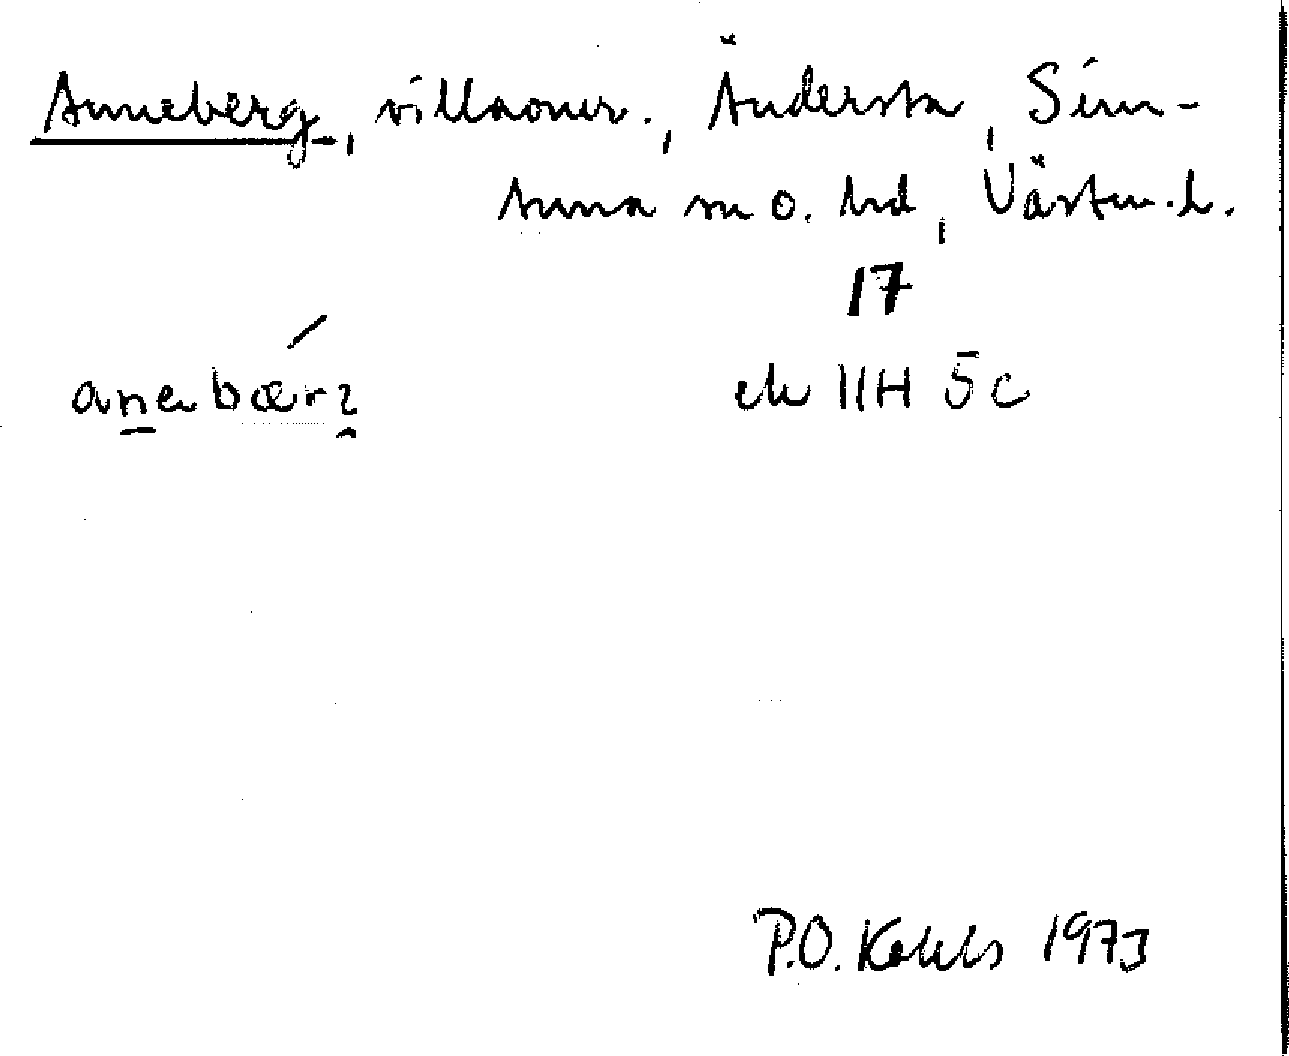 Anneberg, villaomr., Ändersta, Sim-
tuna sn o. hd, Västm. l.
17
anenbærɂ ek 11H 5c
P.O. Kohls 1973